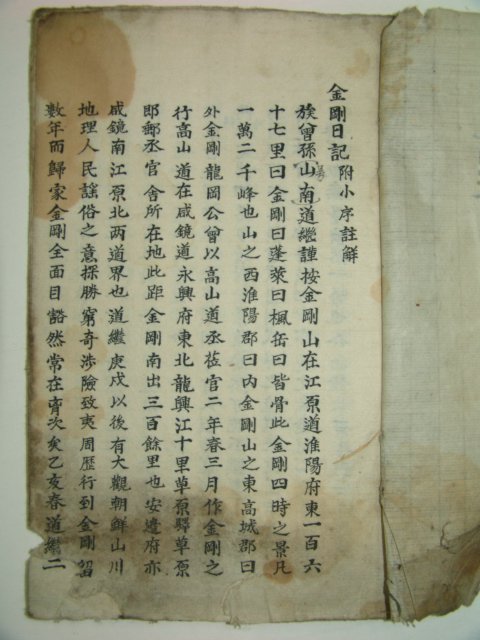 金剛日記 附小序註解
族曾孫山南道繼謹按金剛山在江原道淮陽府東一百六
十七里曰金剛曰蓬萊曰楓岳曰皆骨此金剛四時之景凡
一萬二千峰也山之西淮陽郡曰內金剛山之東高城郡曰
外金剛龍岡公曾以高山道丞莅官二年春三月作金剛之
行高山道在咸鏡道永興府東北龍興江十里草原驛草原
即郵丞官舍所在地此距金剛南出三百餘里也安邊府亦
咸鏡南江原北两道界也道繼庚戌以後有大觀朝鮮山川
地理人民謠俗之意探勝窮奇涉險致夷周歷行到金剛留
數年而歸家金剛全面目豁然常在胷次矣乙亥春道繼二